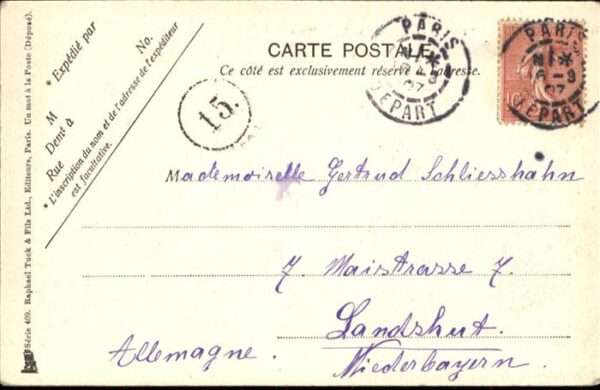 CARTE POSTALE
Ce côté est exclusivement réservé à l'adresse.
* Expédié par
No.
M
Demt à
Rue
* L'inscription du nom et de l'adresse de l'expéditeur
est facultative.
Série 469. Raphael Tuck & Fils Ltd., Editeurs, Paris. Un mot à la Poste (Déposé).
PARIS
DEPART
PARIS
6-9
07
DEPART
15.
Mademoiselle Gertrud Schliesshahn
7. Maistrasse 7.
Landshut.
Allemagne. Niederbayern.